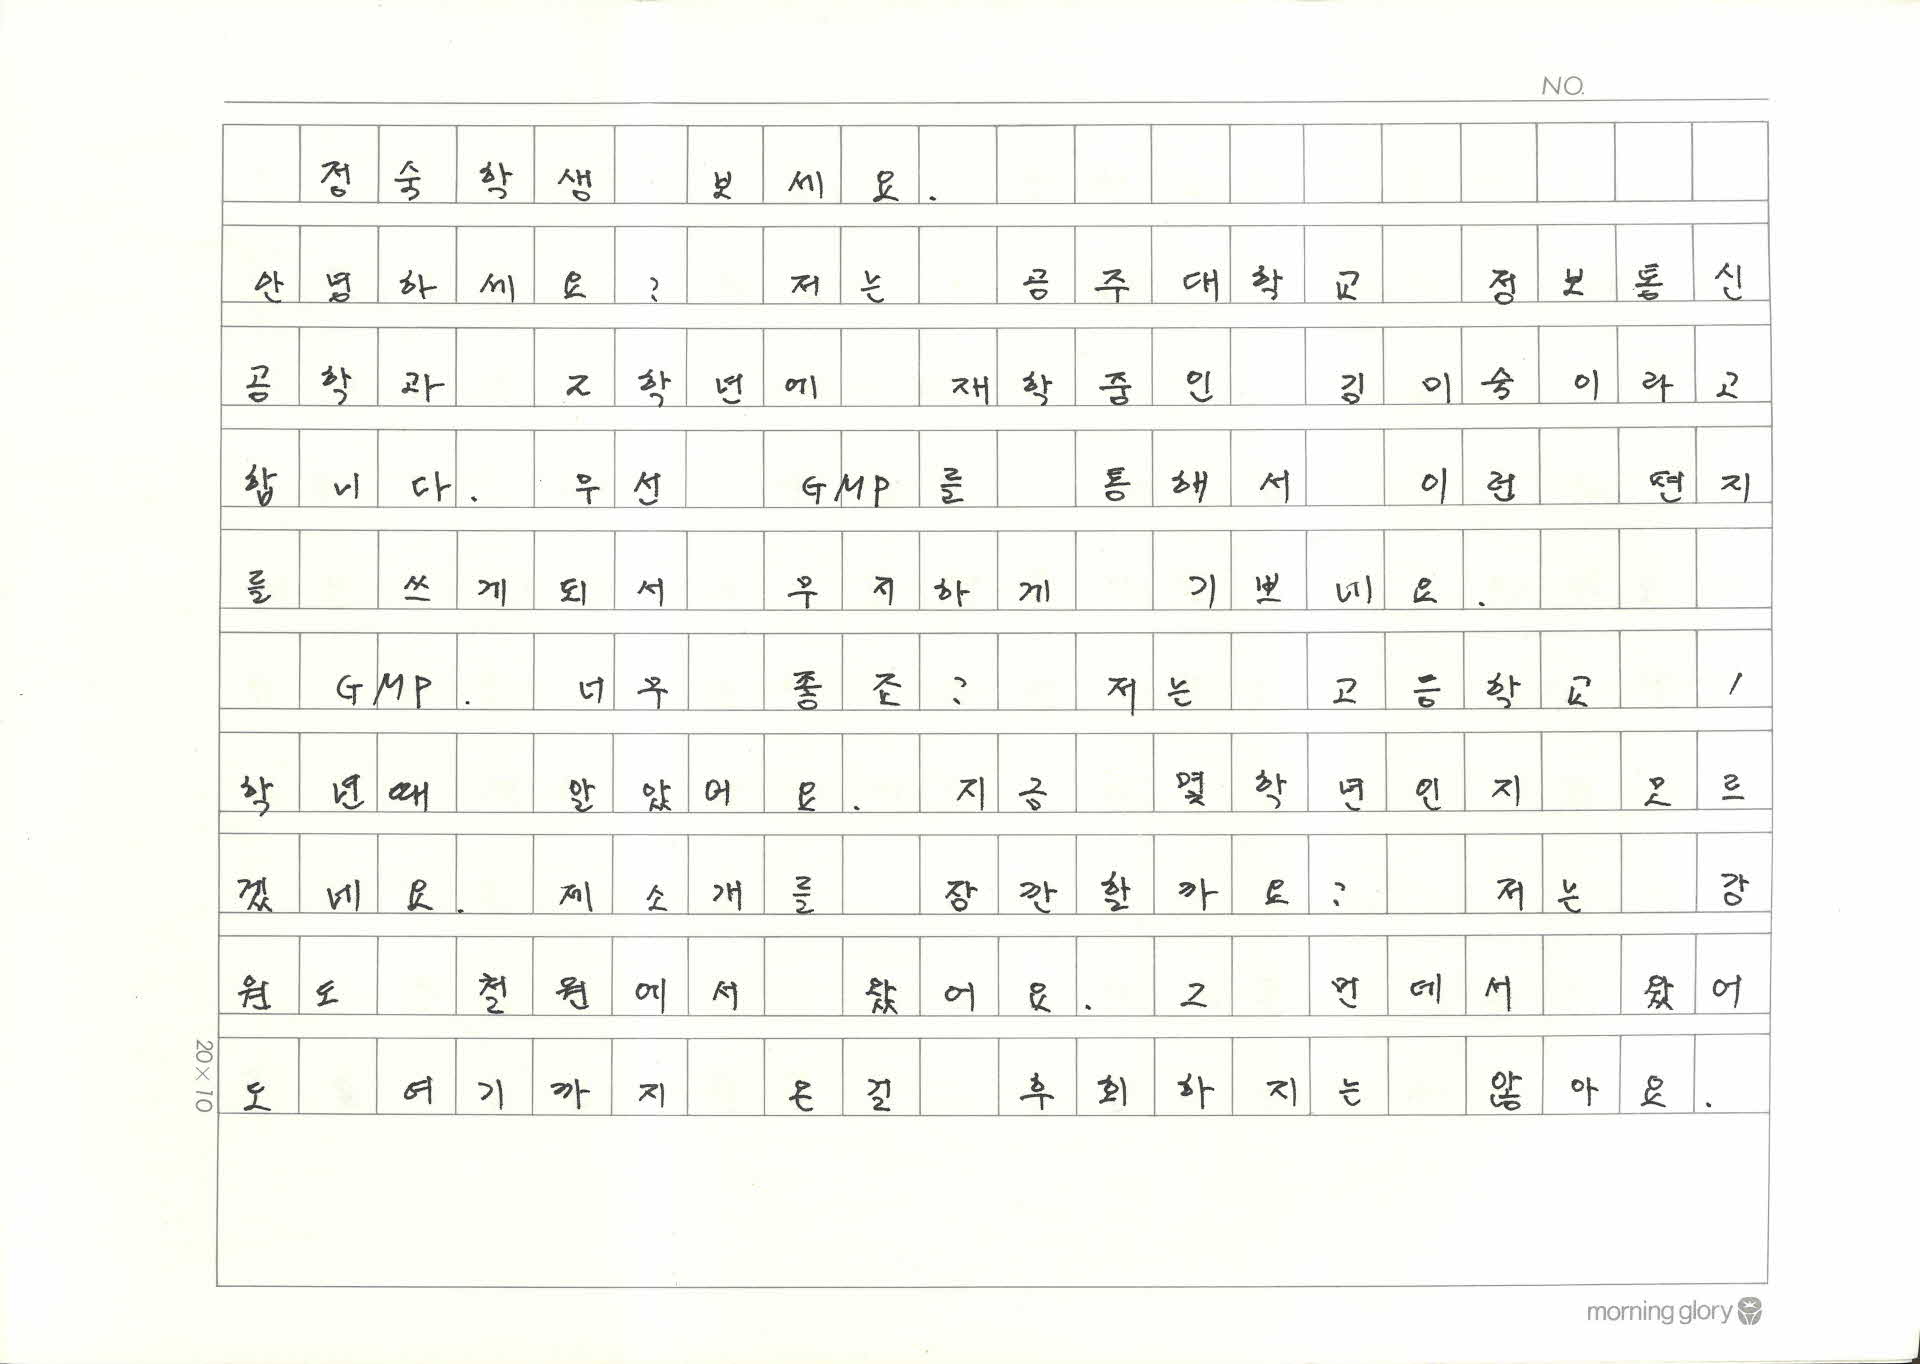 NO.
정숙학생 보세요.
안녕하세요? 저는 공주대학교 정보통신
공학과 2학년에 재학중인 김이숙이라고
합니다. 우선 GMP를 통해서 이런 편지
를 쓰게되서 우지하게 기쁘네요.
GMP. 너무 좋죠? 저는 고등학교 1
학년때 알았어요. 지금 몇학년인지 모르
겠네요. 제소개를 잠깐할까요? 저는 강
원도 철원에서 왔어요. 그 먼데서 왔어
도 여기까지 온걸 후회하지는 않아요.
20×10
morning glory